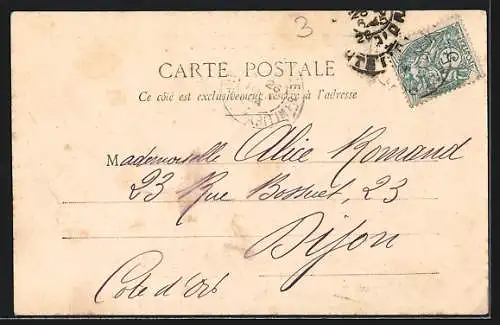 3
CARTE POSTALE
Ce côté est exclusivement réservé à l'adresse
Mademoiselle Alice Romand
23 Rue Bossuet, 23
Dijon
Cote d'Or